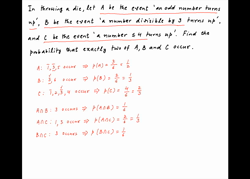 In throwing a die, let A be the event 'an odd number turns
up', B be the event 'a number divisible by 3 turns up',
and C be the event 'a number ≤ 4 turns up'. Find the
probability that exactly two of A, B and C occur.
A: 1, 3, 5 occur ⇒ P(A) = 3/6 = 1/2
B: 3, 6 occur ⇒ P(B) = 2/6 = 1/3
C: 1, 2, 3, 4 occur ⇒ P(C) = 4/6 = 2/3
A∩B: 3 occurs ⇒ P(A∩B) = 1/6
A∩C: 1, 3 occur ⇒ P(A∩C) = 2/6 = 1/3
B∩C: 3 occurs ⇒ P(B∩C) = 1/6